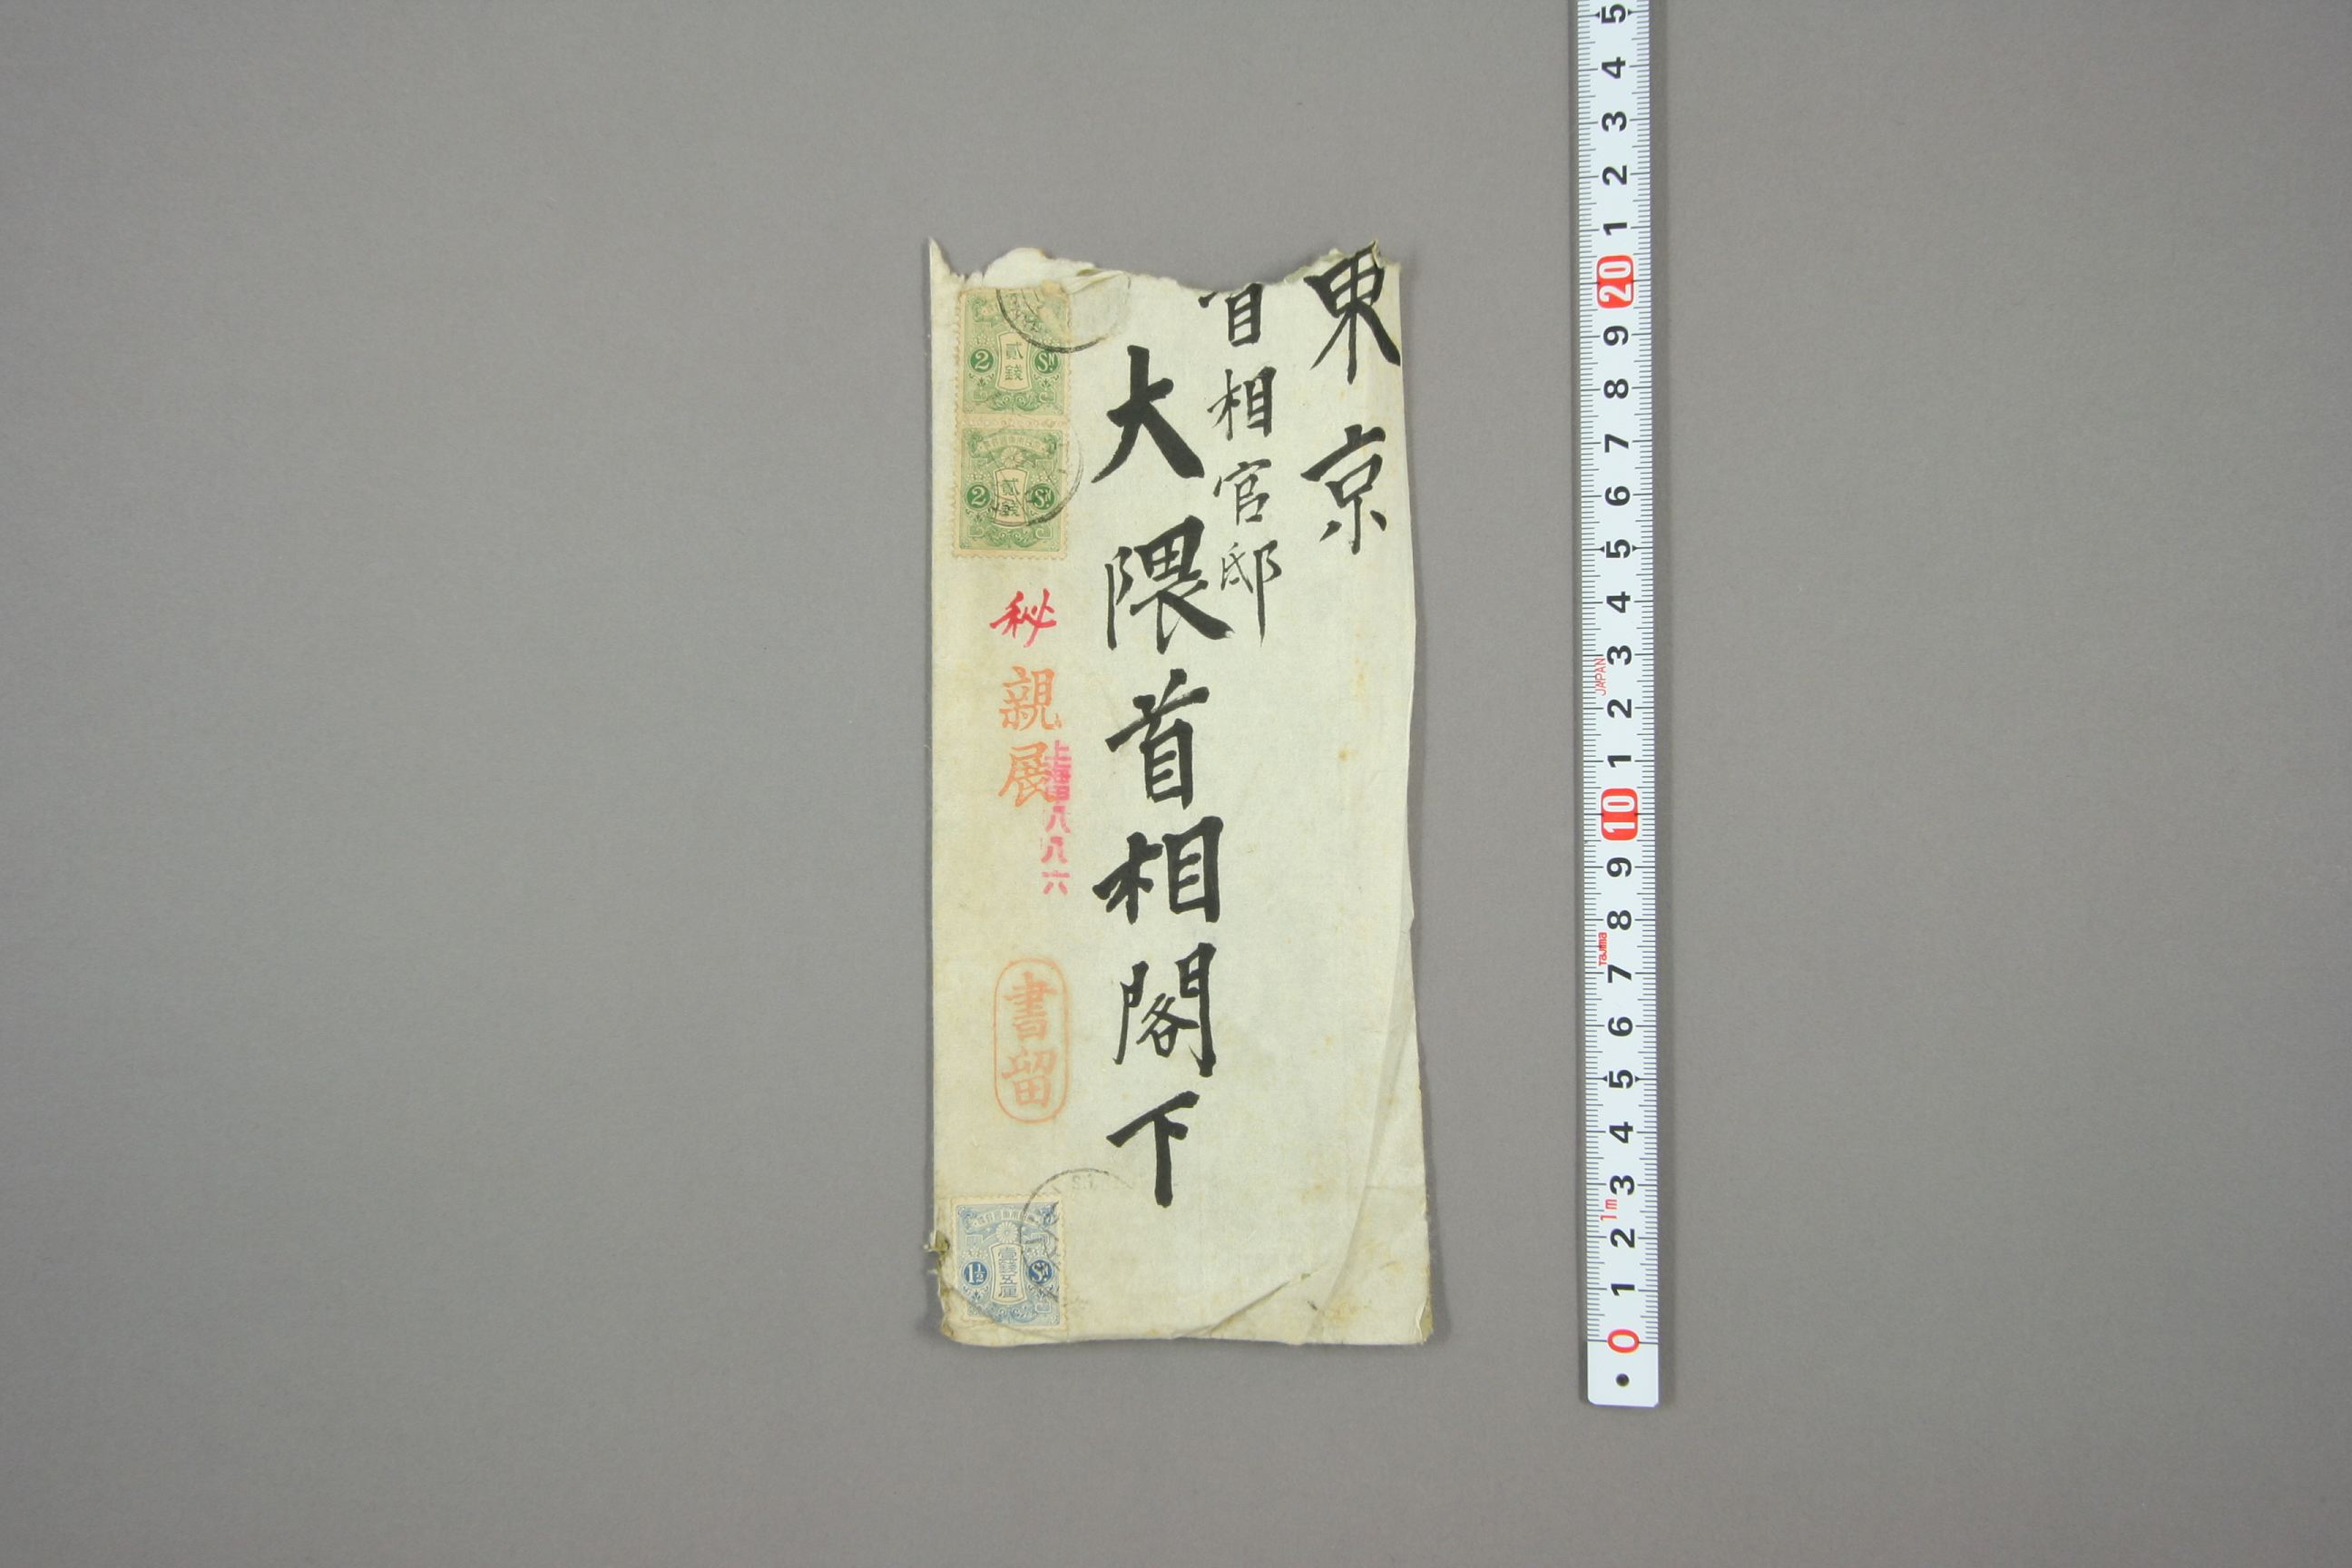 東京
首相官邸
大隈首相閣下
秘
親展
上海
八八六
書留
貳錢
2 Sn
2 Sn
壹錢五厘
1½ Sn
5
4
3
2
1
20
9
8
7
6
5
4
3
JAPAN
2
1
10
9
8
Tajima
7
6
5
4
3
1m
2
1
0